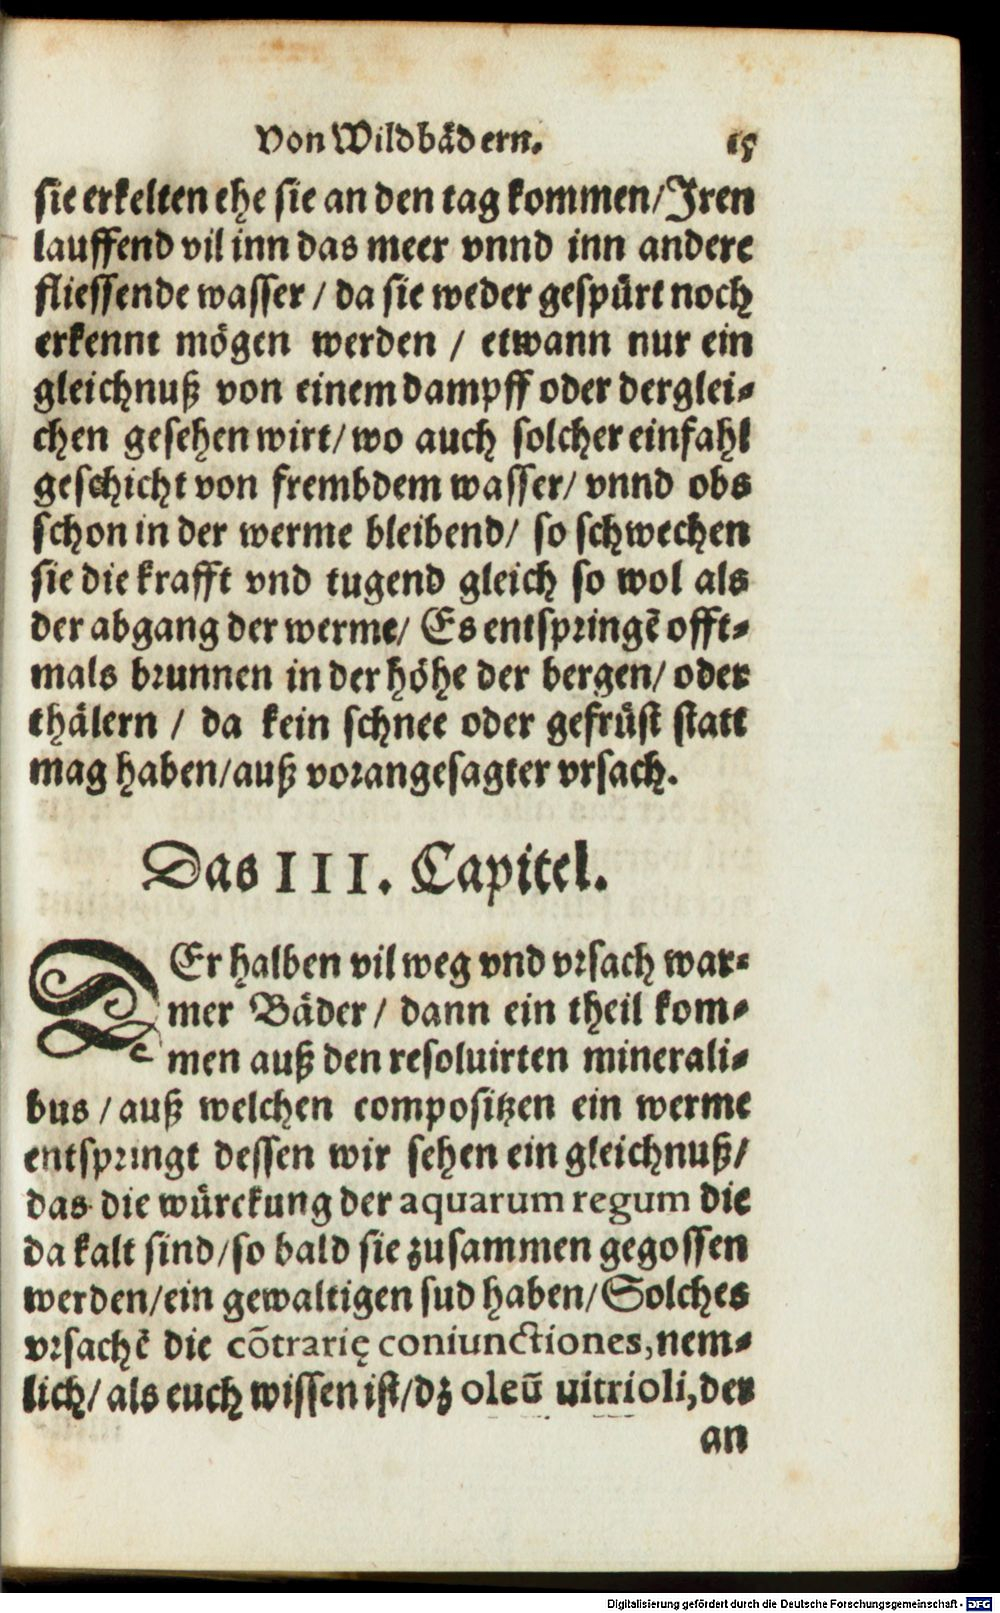 Von Wildbädern. 15
sie erkelten ehe sie an den tag kommen/ Iren
lauffend vil inn das meer vnnd inn andere
fliessende wasser / da sie weder gespürt noch
erkennt mögen werden / etwann nur ein
gleichnuß von einem dampff oder derglei⸗
chen gesehen wirt/ wo auch solcher einfahl
geschicht von frembdem wasser/ vnnd obs
schon in der werme bleibend/ so schwechen
sie die krafft vnd tugend gleich so wol als
der abgang der werme/ Es entspringẽ offt⸗
mals brunnen in der höhe der bergen/ oder
thälern / da kein schnee oder gefrüst statt
mag haben/ auß vorangesagter vrsach.
Das III. Capitel.
DEr halben vil weg vnd vrsach war⸗
mer Bäder/ dann ein theil kom⸗
men auß den resoluirten minerali⸗
bus / auß welchen compositzen ein werme
entspringt dessen wir sehen ein gleichnuß/
das die würckung der aquarum regum die
da kalt sind/ so bald sie zusammen gegossen
werden/ ein gewaltigen sud haben/ Solches
vrsachẽ die cõtrarię coniunctiones, nem⸗
lich/ als euch wissen ist/ dz oleũ uitrioli, der
an
Digitalisierung gefördert durch die Deutsche Forschungsgemeinschaft - DFG